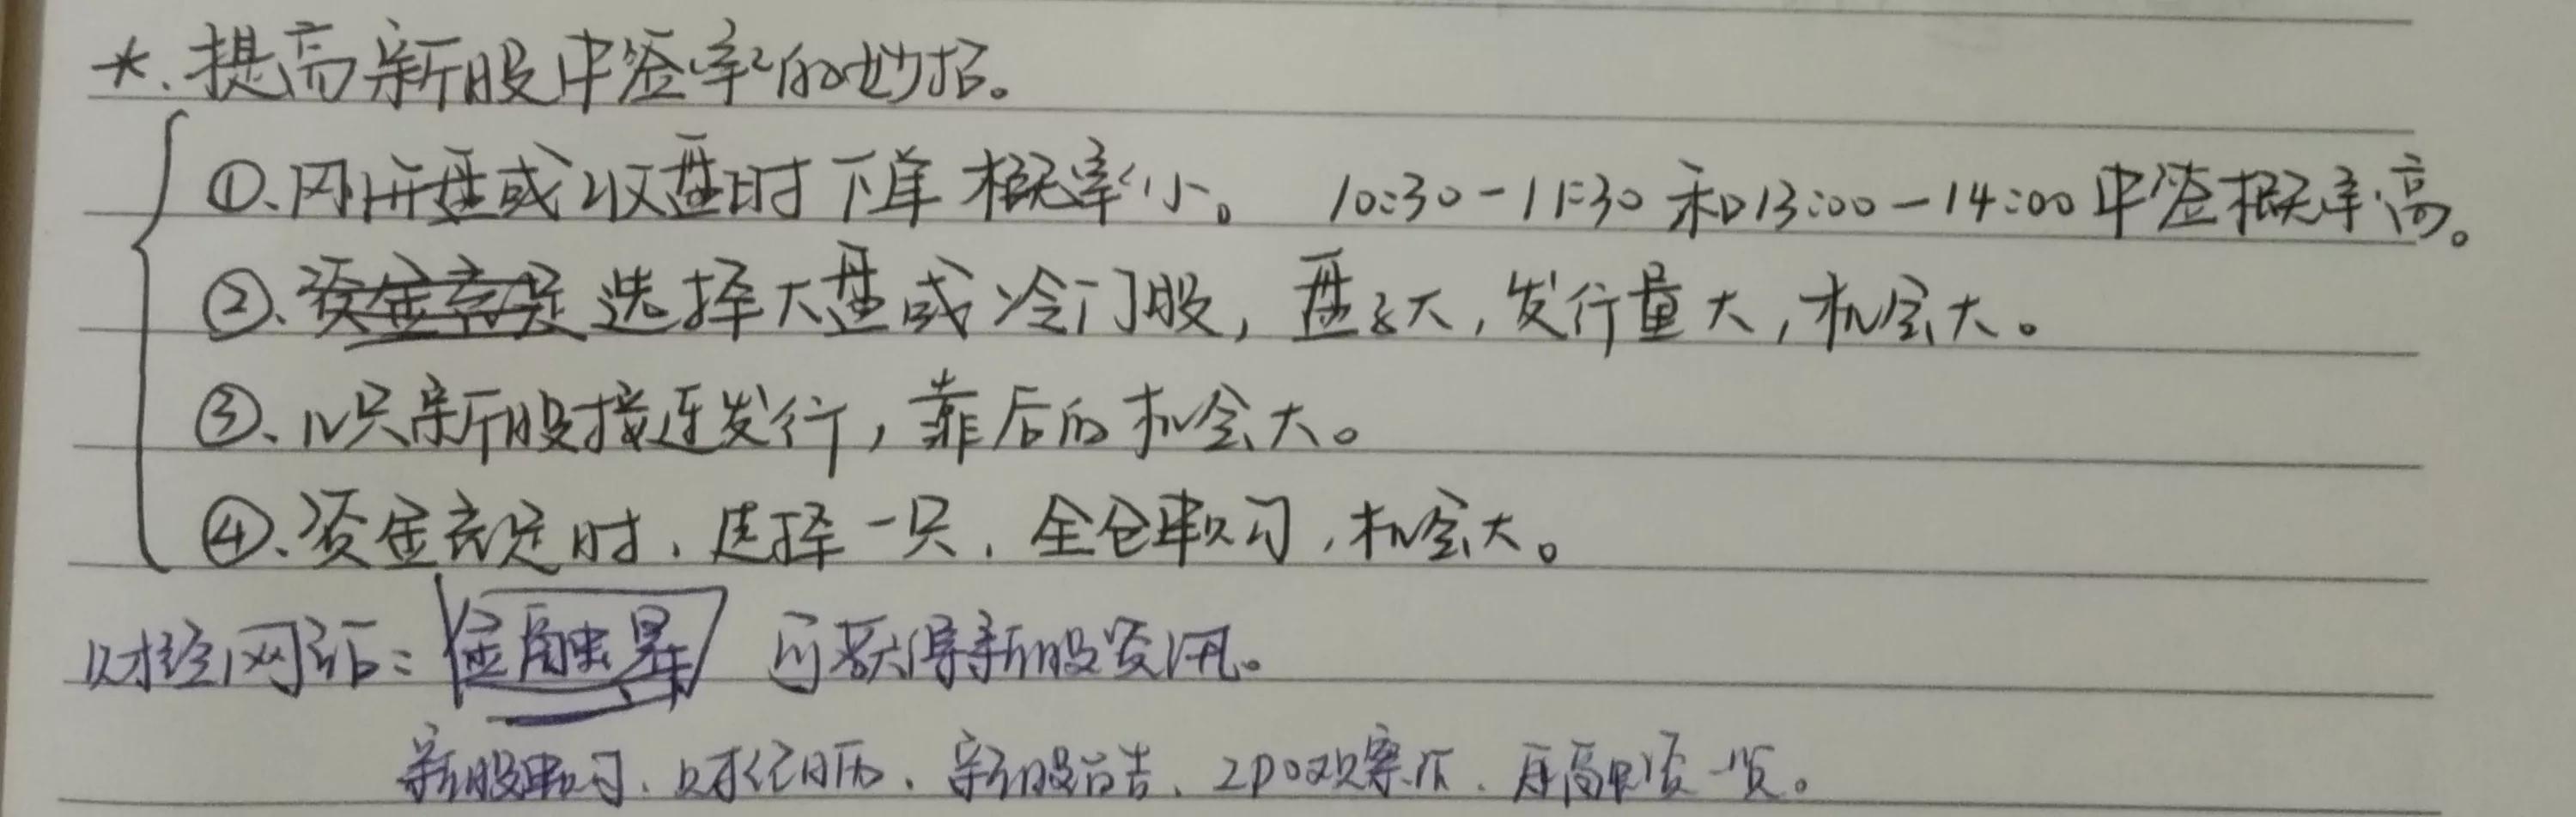 *.提高新股中签率的妙招。
①、刚开盘或收盘时下单概率小。 10:30-11:30和13:00-14:00中签概率高。
②、资金充足选择大盘或冷门股,盘子大,发行量大,机会大。
③、几只新股接连发行,靠后的机会大。
④、资金充足时,选择一只,全仓申购,机会大。
财经网站:金融界 可获得新股资讯。
新股申购、财经日历、新股公告、IPO观察、一览。